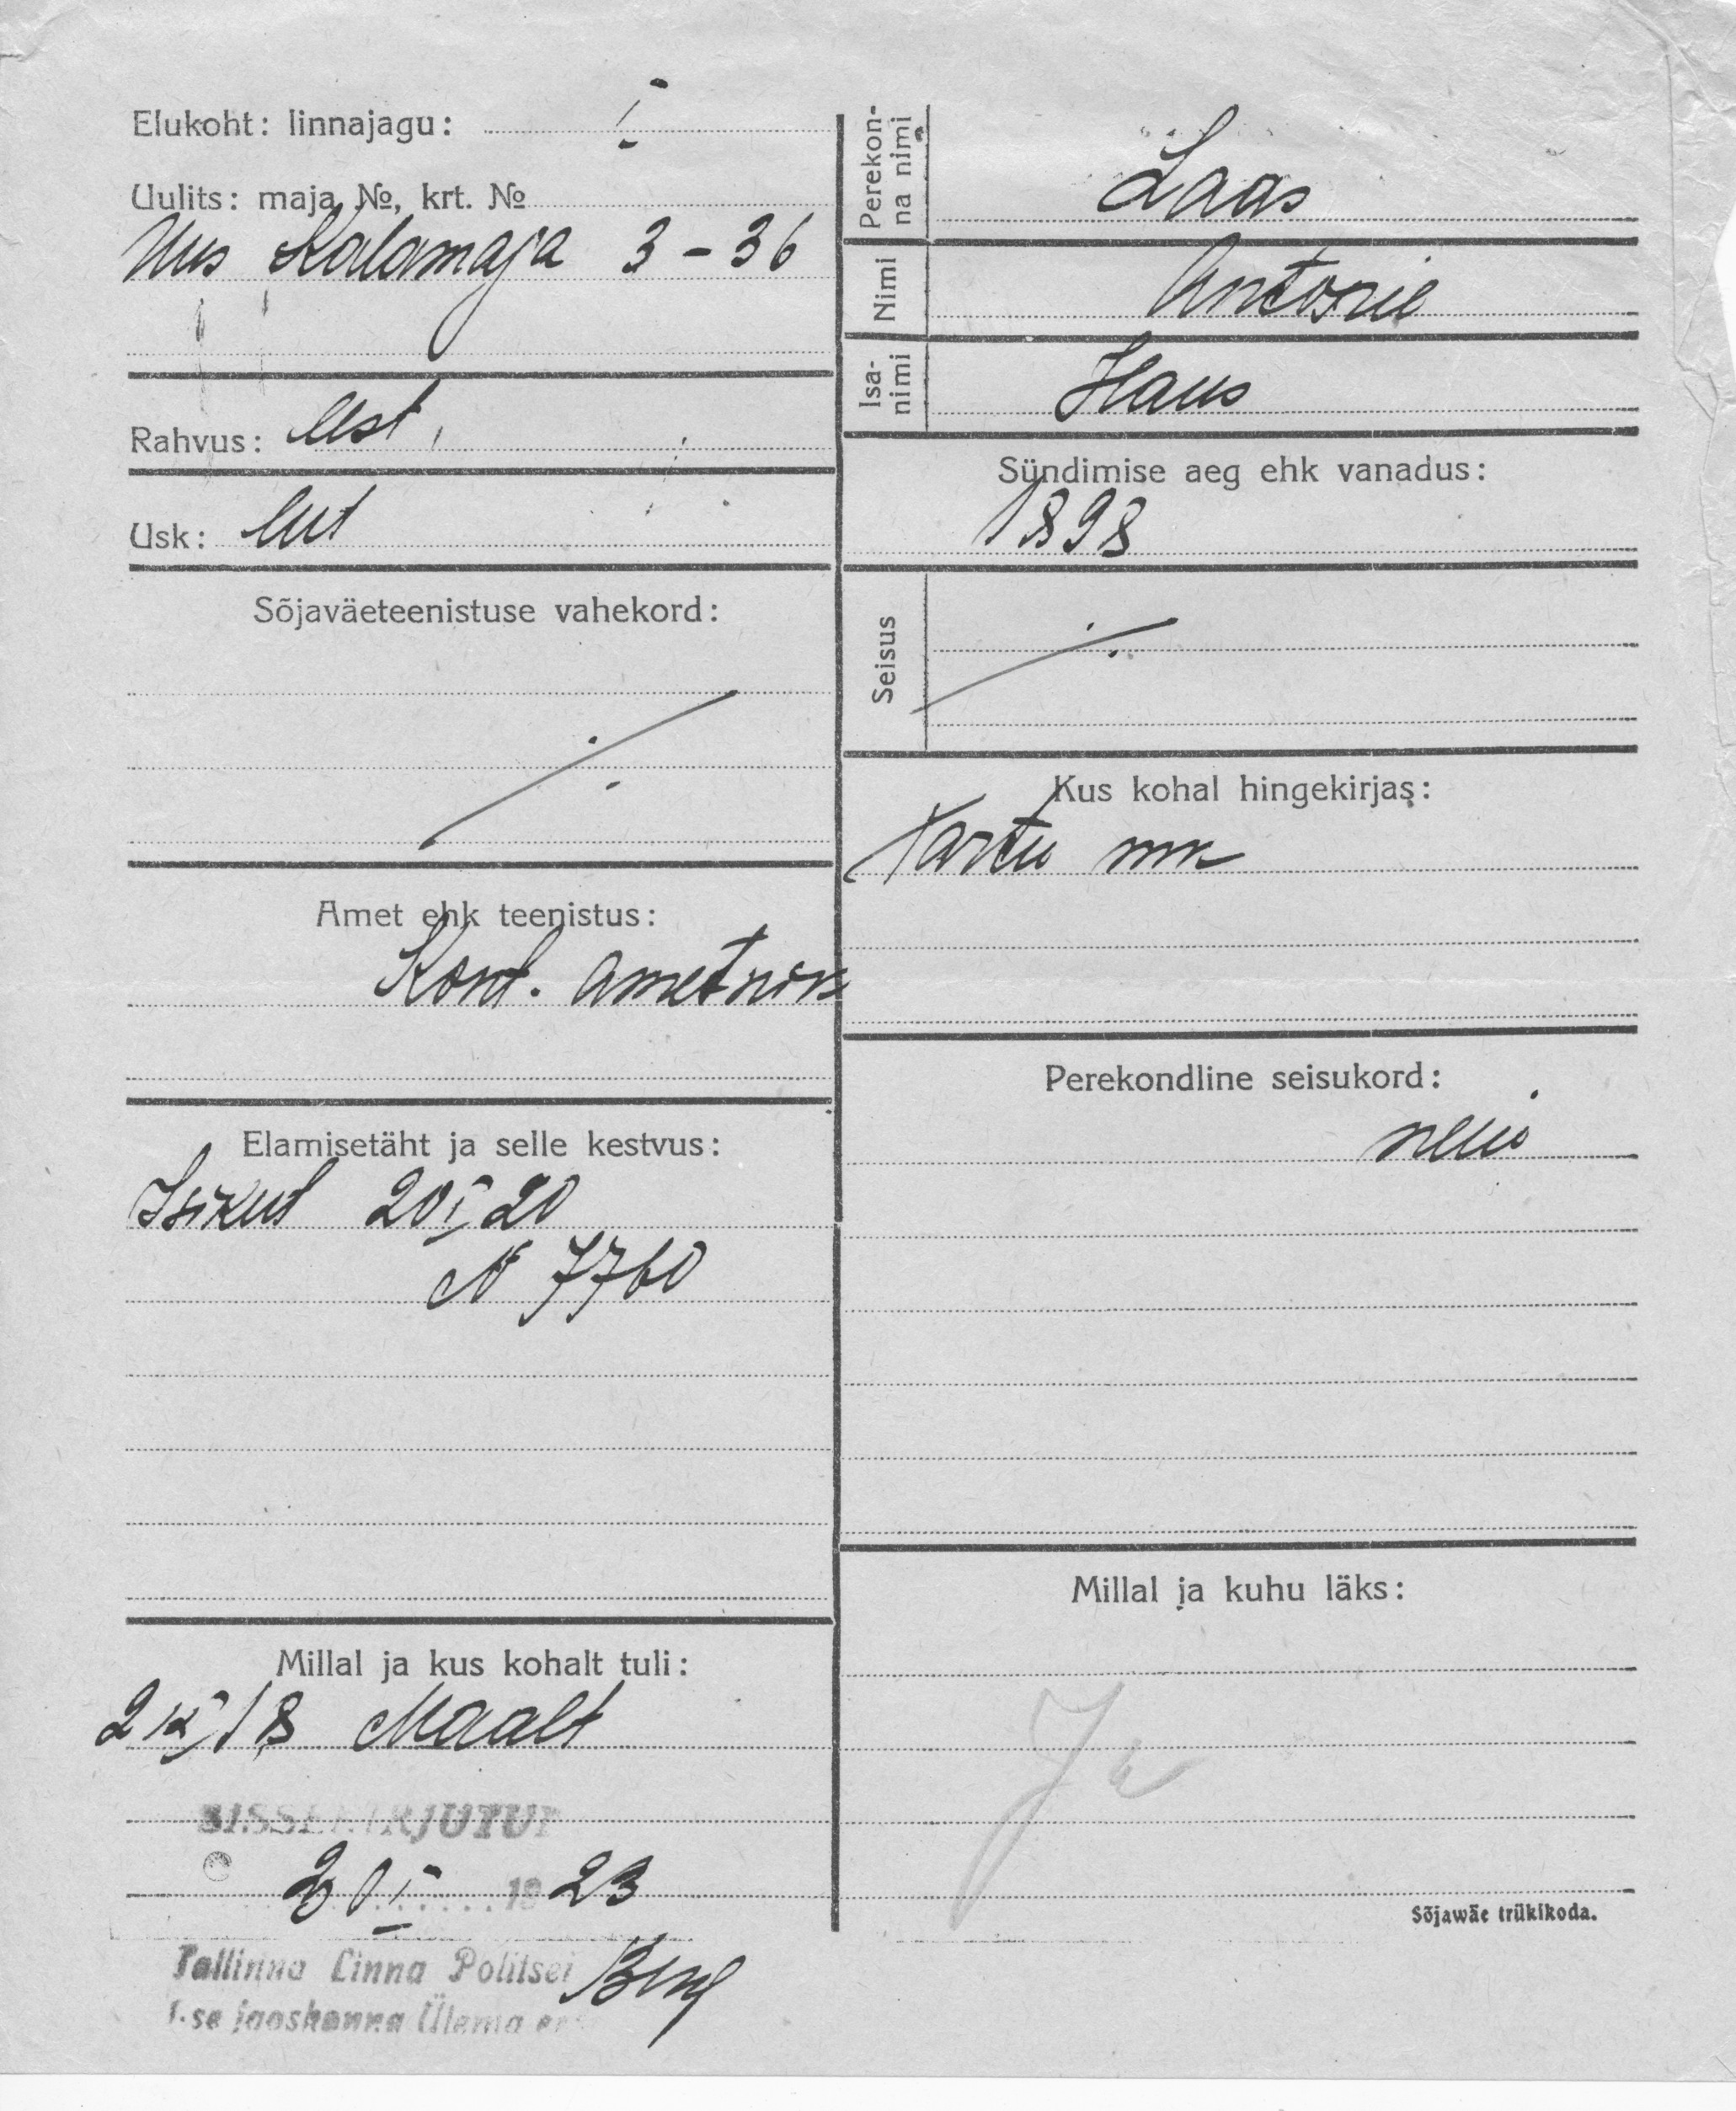 Elukoht: linnajagu: I
Uulits: maja №, krt. №
Uus Kalamaja 3 - 36
Rahvus: eest
Usk: lut
Sõjaväeteenistuse vahekord:
Amet ehk teenistus:
Kont. ametnik
Elamisetäht ja selle kestvus:
Isikut 20 I 20
N 7760
Millal ja kus kohalt tuli:
2 IX 18 Maalt
SISSEKIRJUTUD
20 I 1923
Tallinna Linna Politsei
I-se jaoskonna Ülema
Perekon-
na nimi
Laas
Nimi
Antonie
Isa-
nimi
Hans
Sündimise aeg ehk vanadus:
1898
Seisus
Kus kohal hingekirjas:
Tartu mk
Perekondline seisukord:
neiu
Millal ja kuhu läks:
Sõjawäe trükikoda.